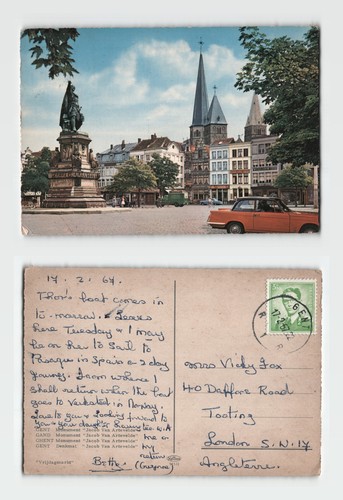 17. 2. 67.
Thors boat comes in
to-morrow & leaves
here Tuesday & I may
be on her to sail to
Pasajes in Spain a 3 day
journey. From where I
shall return when the boat
goes to
Love to you & looking forward to
GENT Monument "Jacob Van Artevelde"
GAND Monument "Jacob Van Artevelde"
GHENT Monument "Jacob Van Artevelde"
GENT Denkmal "Jacob Van Artevelde"
"Vrijdagmarkt"
me on
my
return
GENT
Miss Vicky Fox
40 Dafforne Road
Tooting
London S.W.17
Angleterre.